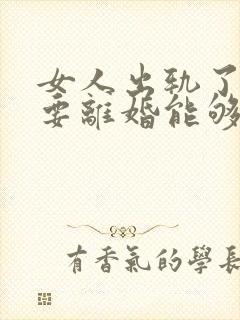 女人出轨了
要離婚能够
有香氣的學長